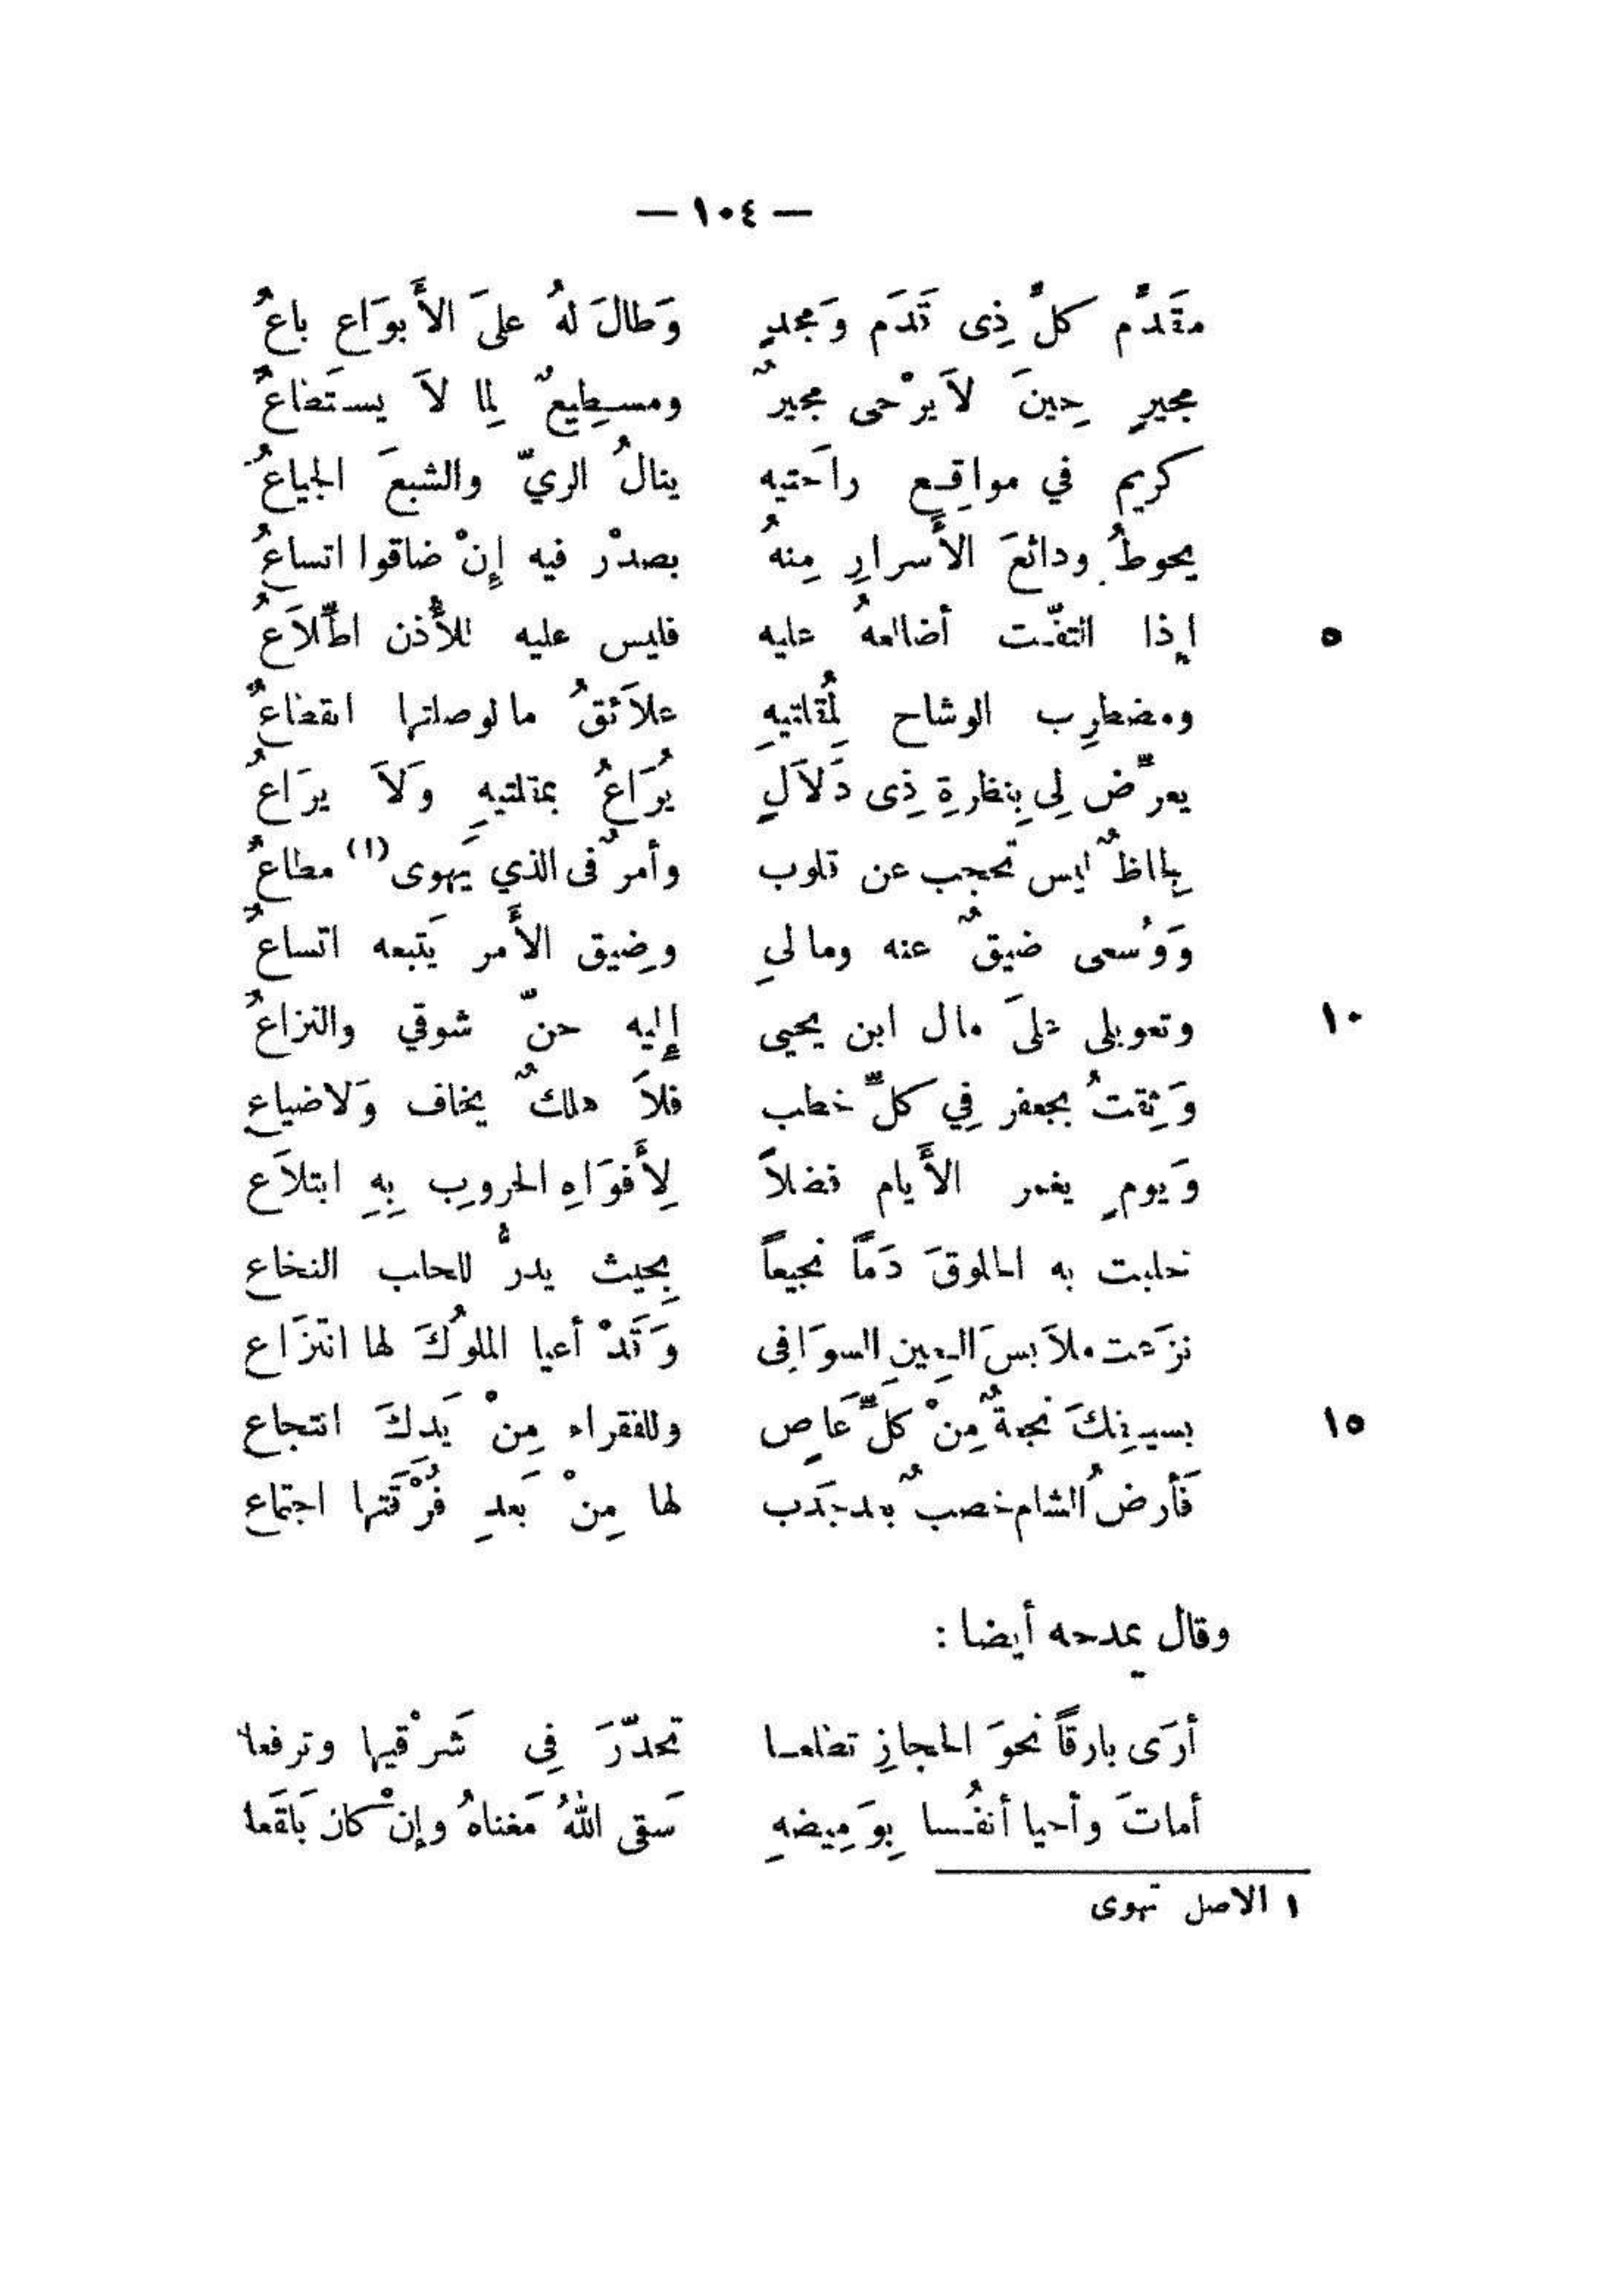 — ١٠٤ —
مقَدَّم كلِّ ذِى قَدَم وَمجدٍ وَطالَ لهُ علىَ الأَبوَاعِ باعُ
مجيرٍ حِينَ لاَ يرْجى مجيرٌ ومسطِيعٌ لِما لاَ يستَطاعُ
كريم في مواقِع راحَتيه ينالُ الريّ والشبعَ الجياعُ
يحوطُ ودائعَ الأَسرارِ مِنهُ بصدْر فيه إِنْ ضاقوا اتساعُ
٥ إِذا التفّت أضالعهُ عليه فليس عليه للأُذن اطّلاَعُ
ومضطرِب الوشاح لِمُقلتيهِ علاَئقُ مالوصلتها انقطاعُ
يعرِّض لِى بِنظرةِ ذِى دَلاَلٍ يُرَاعُ بمقلتيهِ وَلاَ يرَاعُ
بِلحاظٌ ليس تحجب عن قلوب وأمرٌ فى الذي يَهوى (١) مطاعُ
وَوُسعى ضيقٌ عنه ومالىِ وضِيق الأَمر يَتبعه اتساعُ
١٠ وتعويلى علىَ مال ابن يحيى إِليه حنّ شوقي والنزاعُ
وَثِقتُ بجعفر فِي كلِّ خطب فلاَ هلكٌ يخاف وَلاضياع
وَيومٍ يغمر الأَيام فضلاً لِأَفوَاهِ الحروبِ بِهِ ابتلاَع
حلبت به الملوقَ دَمًا نجيعاً بِحيث يدرُّ للحلب النخاع
نزَعت ملاَبسَ العِينِ السوَافِى وَقَدْ أعيا الملوُكَ لها انتزَاع
١٥ بسيفِكَ نجعةٌ مِنْ كلِّ عَاصٍ وللفقراء مِنْ يَدِكَ انتجاع
فَأرضُ الشام خصبٌ بعد جَدَب لها مِنْ بَعدِ فُرْقَتها اجتماع
وقال يمدحه أيضا :
أرَى بارقاً نحوَ الحجازِ تطلعا تحدّرَ فِى شَرْقيها وترفعا
أماتَ وأحيا أنفُسا بِوَمِيضهِ سَقى اللهُ مَغناهُ وإِنْ كان بَلقَعا
١ الاصل تهوى